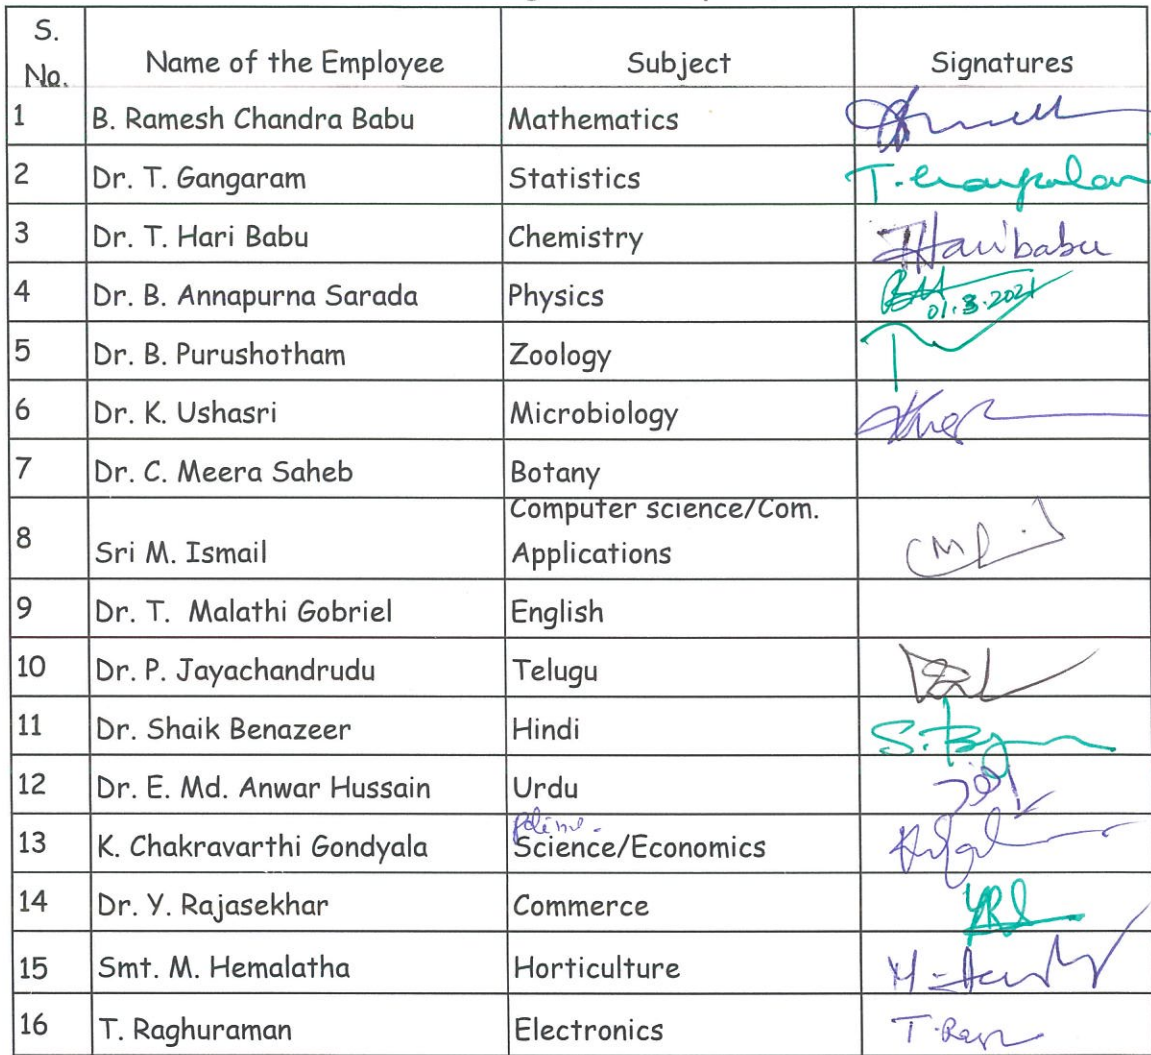 S.
No. Name of the Employee Subject Signatures
1 B. Ramesh Chandra Babu Mathematics
2 Dr. T. Gangaram Statistics
3 Dr. T. Hari Babu Chemistry THaribabu
4 Dr. B. Annapurna Sarada Physics
01.3.2021
5 Dr. B. Purushotham Zoology
6 Dr. K. Ushasri Microbiology
7 Dr. C. Meera Saheb Botany
Computer science/Com.
8 Sri M. Ismail Applications
9 Dr. T. Malathi Gobriel English
10 Dr. P. Jayachandrudu Telugu
11 Dr. Shaik Benazeer Hindi
12 Dr. E. Md. Anwar Hussain Urdu
13 K. Chakravarthi Gondyala Science/Economics
14 Dr. Y. Rajasekhar Commerce
15 Smt. M. Hemalatha Horticulture
16 T. Raghuraman Electronics